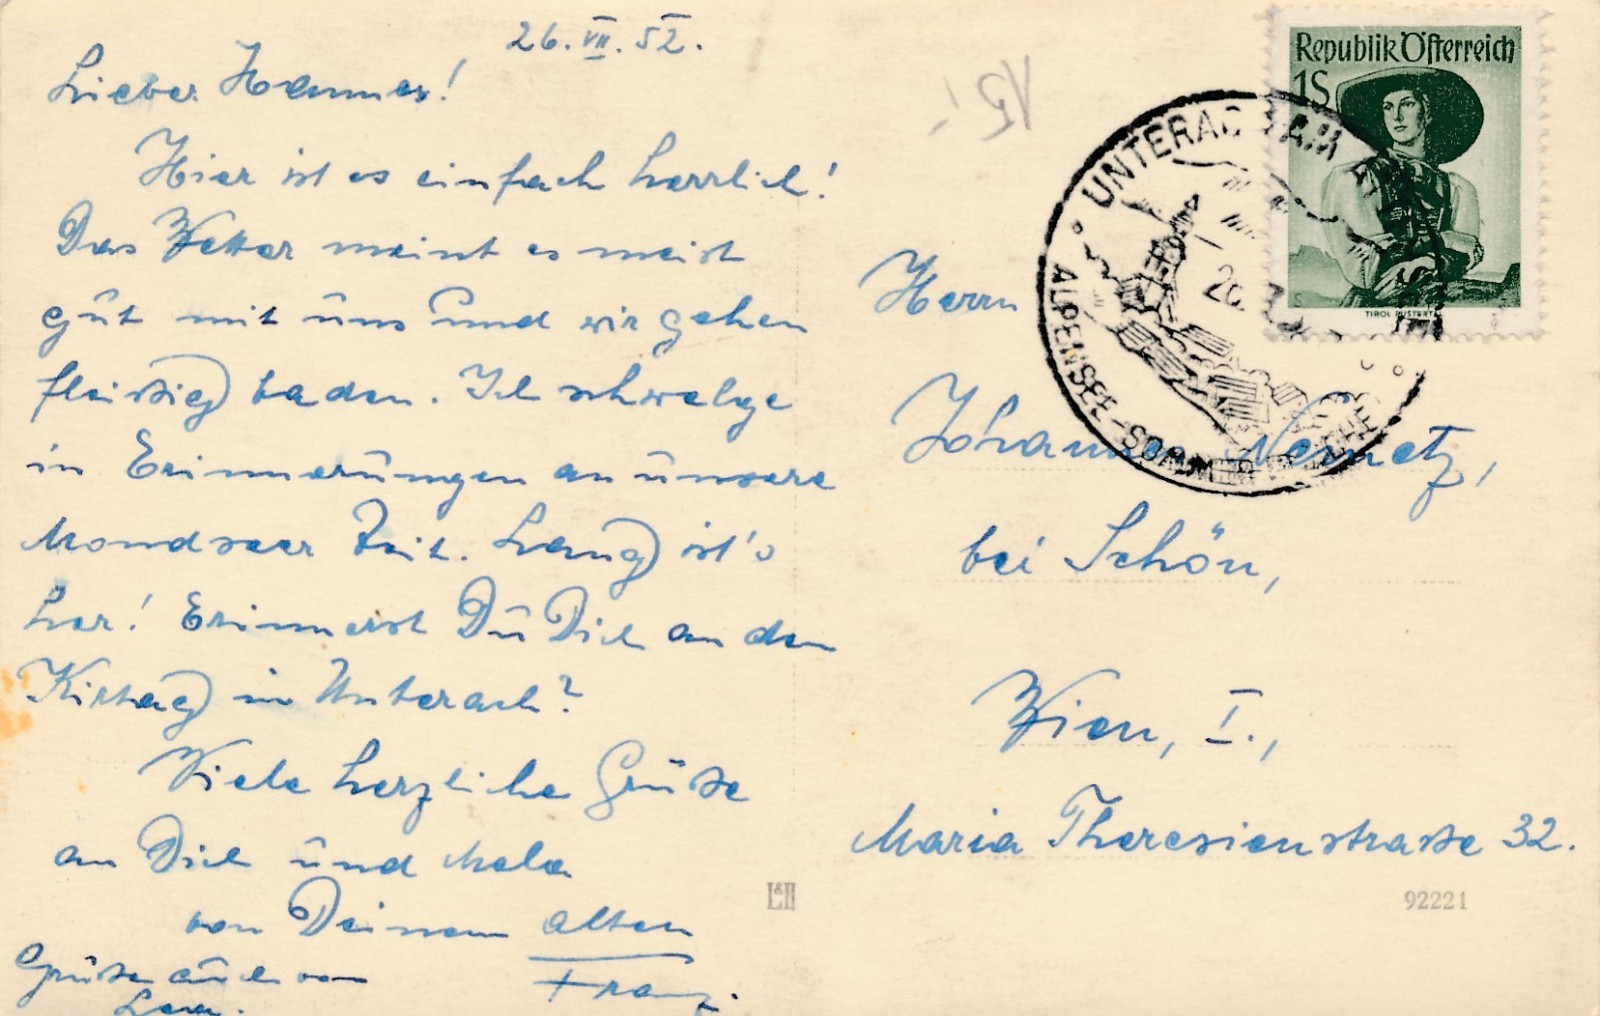 26. VII. 52.
Lieber Hannes!
Hier ist es einfach herrlich!
Das Wetter meint es meist
gut mit uns und wir gehen
fleißig baden. Ich schwelge
in Erinnerungen an unsere
Mondseer Zeit. Lang ist's
her! Erinnerst Du Dich an den
Kirtag in Unterach?
Viele herzliche Grüße
an Dich und Mela
von Deinem alten
Franz.
Grüße auch von
15!
Republik Österreich
1S
TIROL PUSTERTAL
UNTERACH AM
ALPENSEE-SOMMERFRISCHE
Herrn
Johannes Nemetz,
bei Schön,
Wien, I.,
Maria Theresienstrasse 32.
L&H
92221